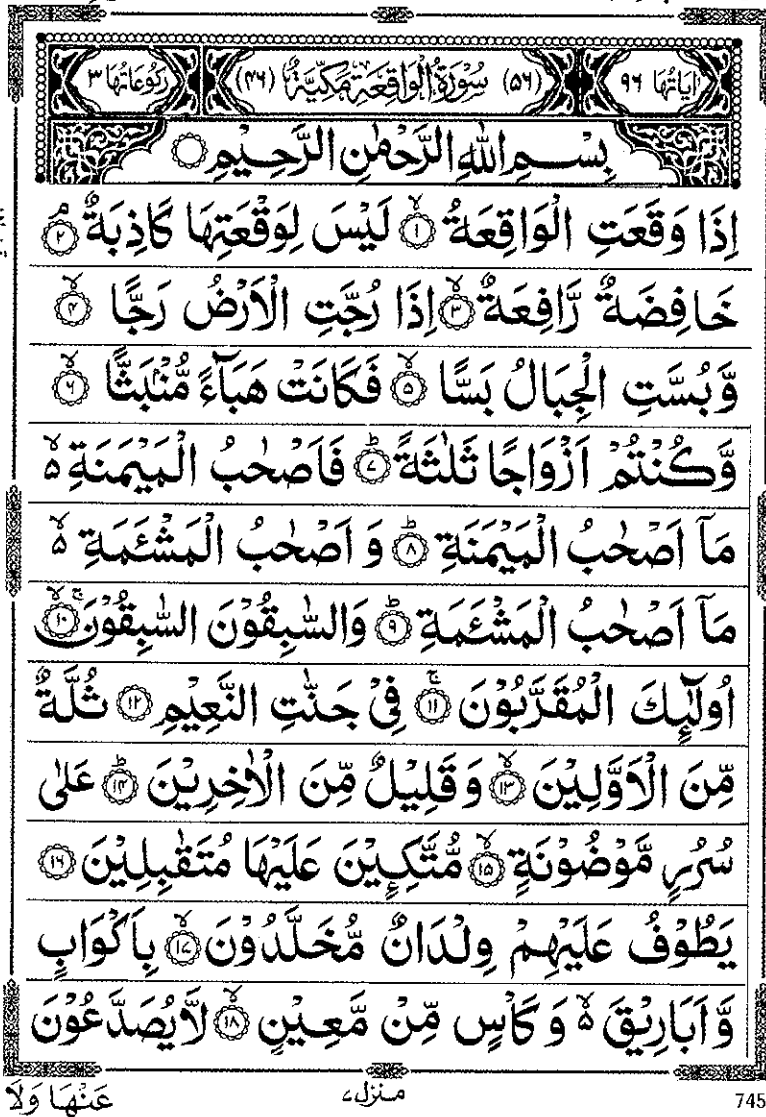 اٰیَاتُهَا ٩٦ (٥٦) سُوْرَةُ الْوَاقِعَةِ مَكِّيَّةٌ (٤٦) رُكُوْعَاتُهَا ٣
بِسْمِ اللهِ الرَّحْمٰنِ الرَّحِيْمِ
اِذَا وَقَعَتِ الْوَاقِعَةُ ۙ‏﴿١﴾ لَيْسَ لِوَقْعَتِهَا كَاذِبَةٌ ۘ‏﴿٢﴾
خَافِضَةٌ رَّافِعَةٌ ۙ‏﴿٣﴾ اِذَا رُجَّتِ الْاَرْضُ رَجًّا ۙ‏﴿٤﴾
وَّبُسَّتِ الْجِبَالُ بَسًّا ۙ‏﴿٥﴾ فَكَانَتْ هَبَآءً مُّنْۢبَثًّا ۙ‏﴿٦﴾
وَّكُنْتُمْ اَزْوَاجًا ثَلٰثَةً ؕ‏﴿٧﴾ فَاَصْحٰبُ الْمَيْمَنَةِ ۙ۵
مَاۤ اَصْحٰبُ الْمَيْمَنَةِ ؕ‏﴿٨﴾ وَ اَصْحٰبُ الْمَشْـَٔمَةِ ۙ۵
مَاۤ اَصْحٰبُ الْمَشْـَٔمَةِ ؕ‏﴿٩﴾ وَالسّٰبِقُوْنَ السّٰبِقُوْنَ ۚۙ‏﴿١٠﴾
اُولٰٓئِكَ الْمُقَرَّبُوْنَ ۚ‏﴿١١﴾ فِيْ جَنّٰتِ النَّعِيْمِ ‏﴿١٢﴾ ثُلَّةٌ
مِّنَ الْاَوَّلِيْنَ ۙ‏﴿١٣﴾ وَقَلِيْلٌ مِّنَ الْاٰخِرِيْنَ ؕ‏﴿١٤﴾ عَلٰى
سُرُرٍ مَّوْضُوْنَةٍ ۙ‏﴿١٥﴾ مُّتَّكِـِٕيْنَ عَلَيْهَا مُتَقٰبِلِيْنَ ‏﴿١٦﴾
يَطُوْفُ عَلَيْهِمْ وِلْدَانٌ مُّخَلَّدُوْنَ ۙ‏﴿١٧﴾ بِاَكْوَابٍ
وَّاَبَارِيْقَ ۵ وَكَاْسٍ مِّنْ مَّعِيْنٍ ۙ‏﴿١٨﴾ لَّا يُصَدَّعُوْنَ
عَنْهَا وَلَا
منزل٧
745